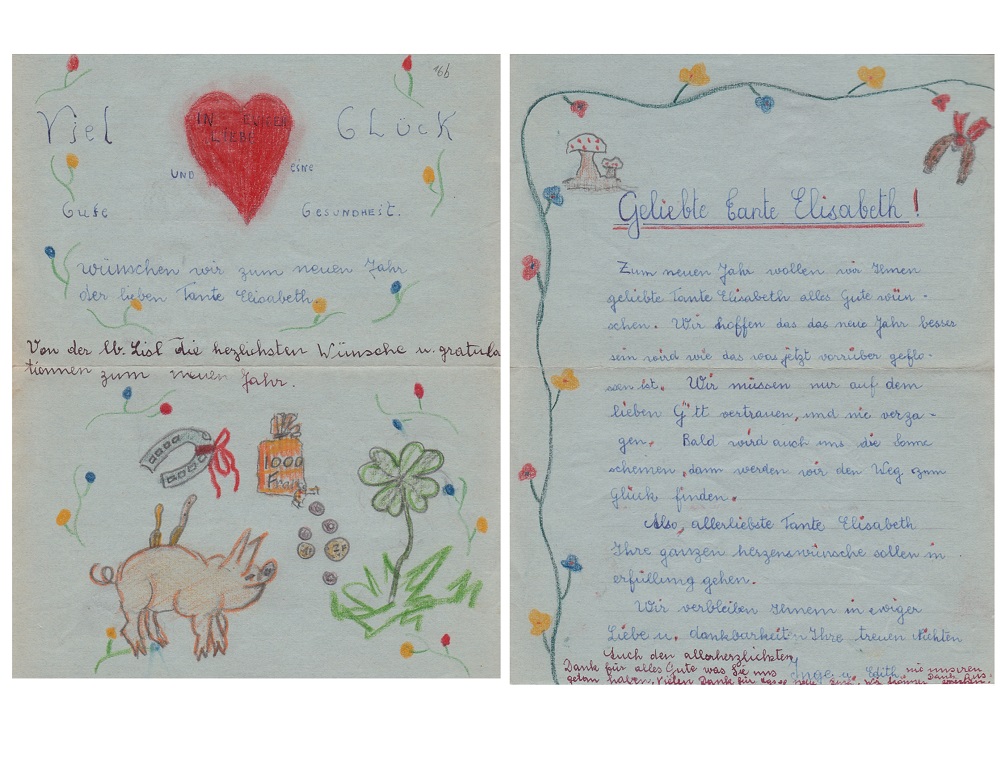 16b
Viel
IN EURER
LIEBE
GLÜCK
UND eine
Gute GESUNDHEIT.
wünschen wir zum neuen Jahr
der lieben Tante Elisabeth.
Von der lb. Lisl die hezlichsten Wünsche u. gratula
tionnen zum neuen Jahr.
1000
Geliebte Tante Elisabeth!
Zum neuen Jahr wollen wir Ihnen
geliebte Tante Elisabeth alles Gute wün-
schen. Wir hoffen das das neue Jahr besser
sein wird wie das was jetzt vorrüber geflo-
sen ist. Wir müssen nur auf dem
lieben Gott vertrauen, und nie verza-
gen. Bald wird auch uns die Sonne
scheinen, dann werden wir den Weg zum
Glück finden.
Also, allerliebste Tante Elisabeth
Ihre ganzen herzenswünsche sollen in
erfüllung gehen.
Wir verbleiben Ihnen in ewiger
Liebe u. dankbarkeit. Ihre treuen Nichten
Inge u. Edith
Auch den allerherzlichsten
Dank für alles Gute was Sie uns
getan haben. Vielen Dank für
nie unseren
Dank aus